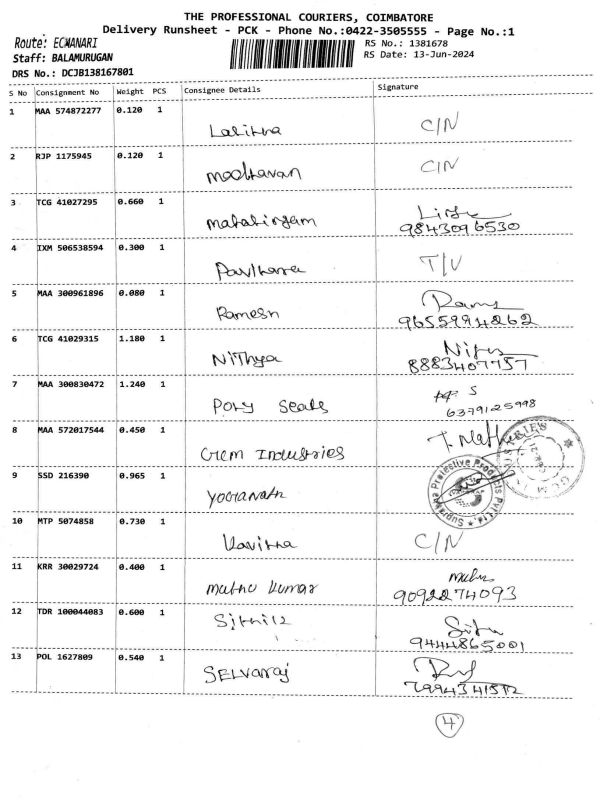 THE PROFESSIONAL COURIERS, COIMBATORE
Delivery Runsheet - PCK - Phone No.:0422-3505555 - Page No.:1
Route: ECHANARI
RS No.: 1381678
Staff: BALAMURUGAN
RS Date: 13-Jun-2024
DRS No.: DCJB138167801
S No Consignment No Weight PCS Consignee Details Signature
1 MAA 574872277 0.120 1 Lalitha C/N
2 RJP 1175945 0.120 1 Madhavan C/N
3 TCG 41027295 0.660 1 9843096530
4 IXM 506538594 0.300 1 T/U
5 MAA 300961896 0.080 1 Ramesh
9655994262
6 TCG 41029315 1.180 1 Nithya
8883407757
7 MAA 300830472 1.240 1 Poly Seals
6379125998
8 MAA 572017544 0.450 1 Gem Industries
9 SSD 216390 0.965 1 Yoganath
Supreme Protective Products Pvt Ltd
10 MTP 5074858 0.730 1 Kavitha C/N
11 KRR 30029724 0.400 1 Muthu Kumar
9092274093
12 TDR 100044083 0.600 1
9444865001
13 POL 1627809 0.540 1 Selvaraj
4